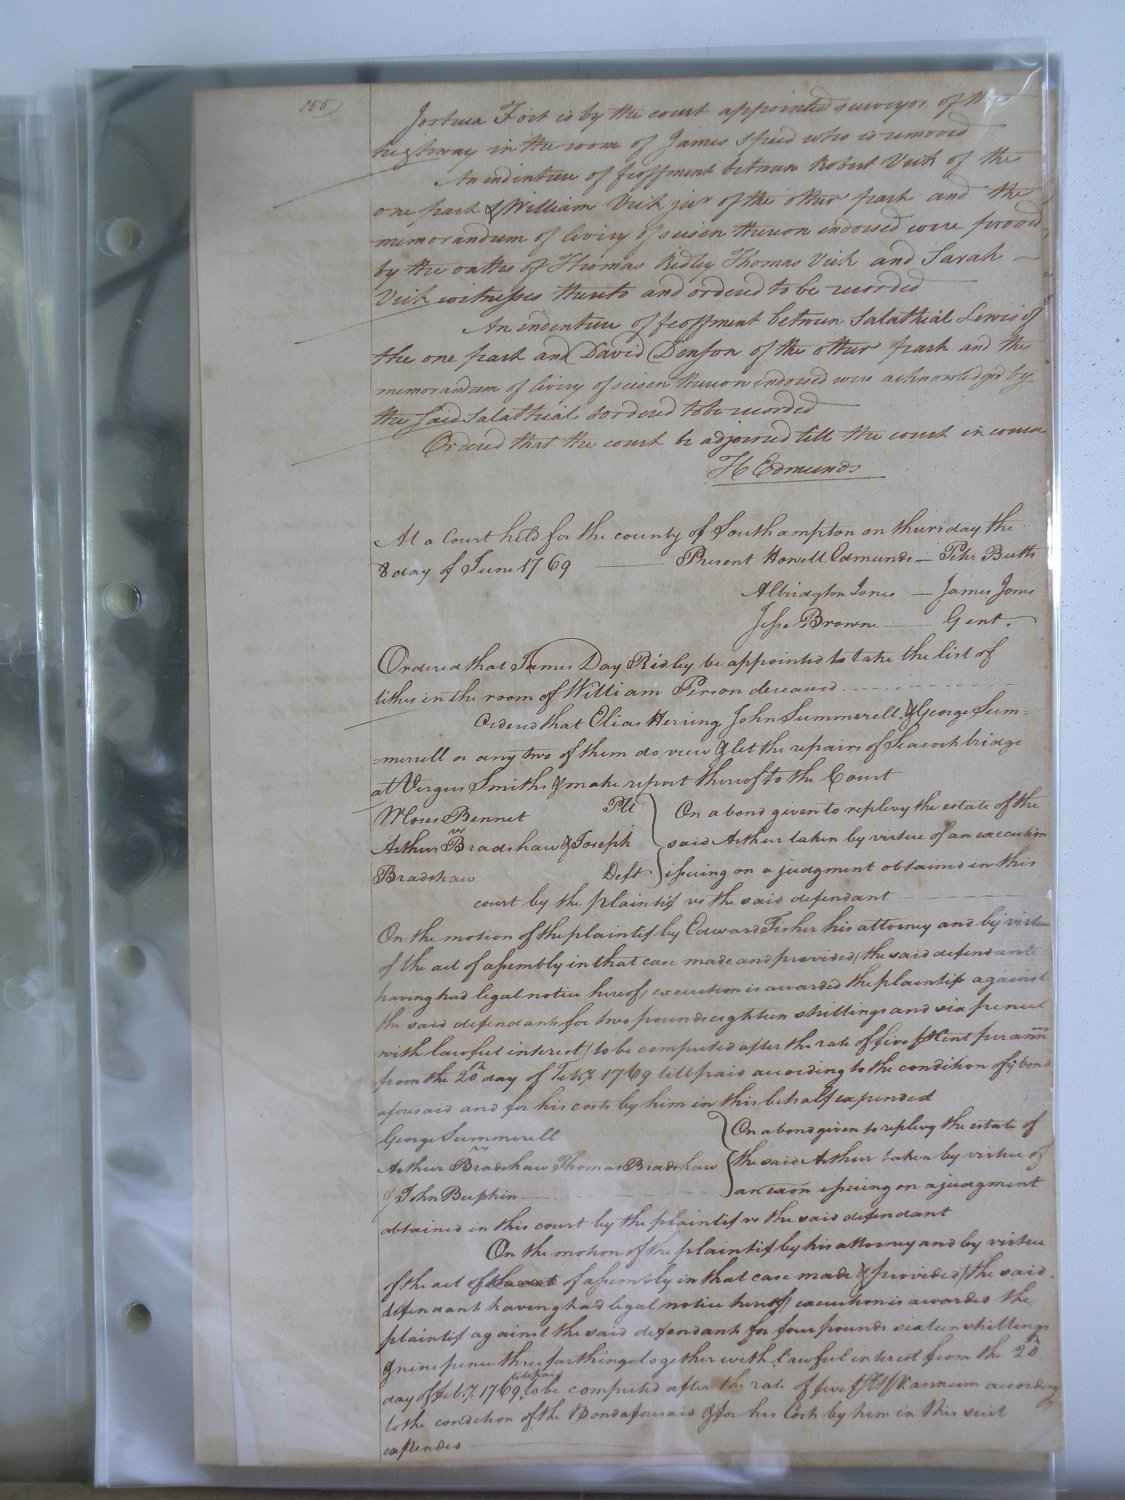 155)
Joshua Fort is by the court appointed surveyor of the
highway in the room of James Speed who is removed
An indenture of feoffment between Robert Vick of the
one part & William Vick junr of the other part and the
memorandum of livery of seisen thereon endorsed were proved
by the oaths of Thomas Ridley Thomas Vick and Sarah
Vick witnesses thereto and ordered to be recorded
An indenture of feoffment between Salathial Lewis of
the one part and David Denson of the other part and the
memorandum of livery of seisen thereon endorsed were acknowledged by
the said Salathial & ordered to be recorded
Ordered that the court be adjorned till the court in course
H Edmunds
At a Court held for the county of Southampton on thursday the
8 day of June 1769 Present Howell Edmunds Peter Butts
Albridgton Jones James Jones
Jesse Browne Gent.
Ordered that James Day Ridley be appointed to take the list of
tithes in the room of William Person deceased
Ordered that Elias Herring John Summerell & George Sum-
-merell or any two of them do view & let the repairs of Seacock bridge
at Virgus Smiths & make report thereof to the Court
Moses Bennet Plt On a bond given to replevy the estate of the
vs
Arthur Bradshaw & Joseph said Arthur taken by virtue of an execution
Bradshaw Deft issuing on a judgment obtained in this
court by the plaintif vs the said defendant
On the motion of the plaintif by Edward Fisher his attorney and by virtue
of the act of assembly in that case made and provided (the said defendants
having had legal notice hereof) execution is awarded the plaintif against
the said defendants for two pounds eighteen shillings and six pence
with lawful interest (to be computed after the rate of five ⅌ Cent per annm
from the 20th day of Feby. 1769 till paid according to the condition of ye bond
aforesaid and for his costs by him in this behalf expended
George Summerell On a bond given to replevy the estate of
vs
Arthur Bradshaw Thomas Bradshaw the said Arthur taken by virtue of
& John Bupkin an exon issuing on a judgment
obtained in this court by the plaintif vs the said defendant
On the motion of the plaintif by his attorney and by virtue
of the act of assembly in that case made & provided (the said
defendants having had legal notice hereof) execution is awarded the
plaintif against the said defendants for four pounds sixteen shillings
& nine pence three farthings together with lawful interest from the 20th
till paid
day of Feby. 1769, to be computed after the rate of five ⅌ Ct ⅌ annum according
to the condition of the Bond aforesaid & for his Costs by him in this suit
expended